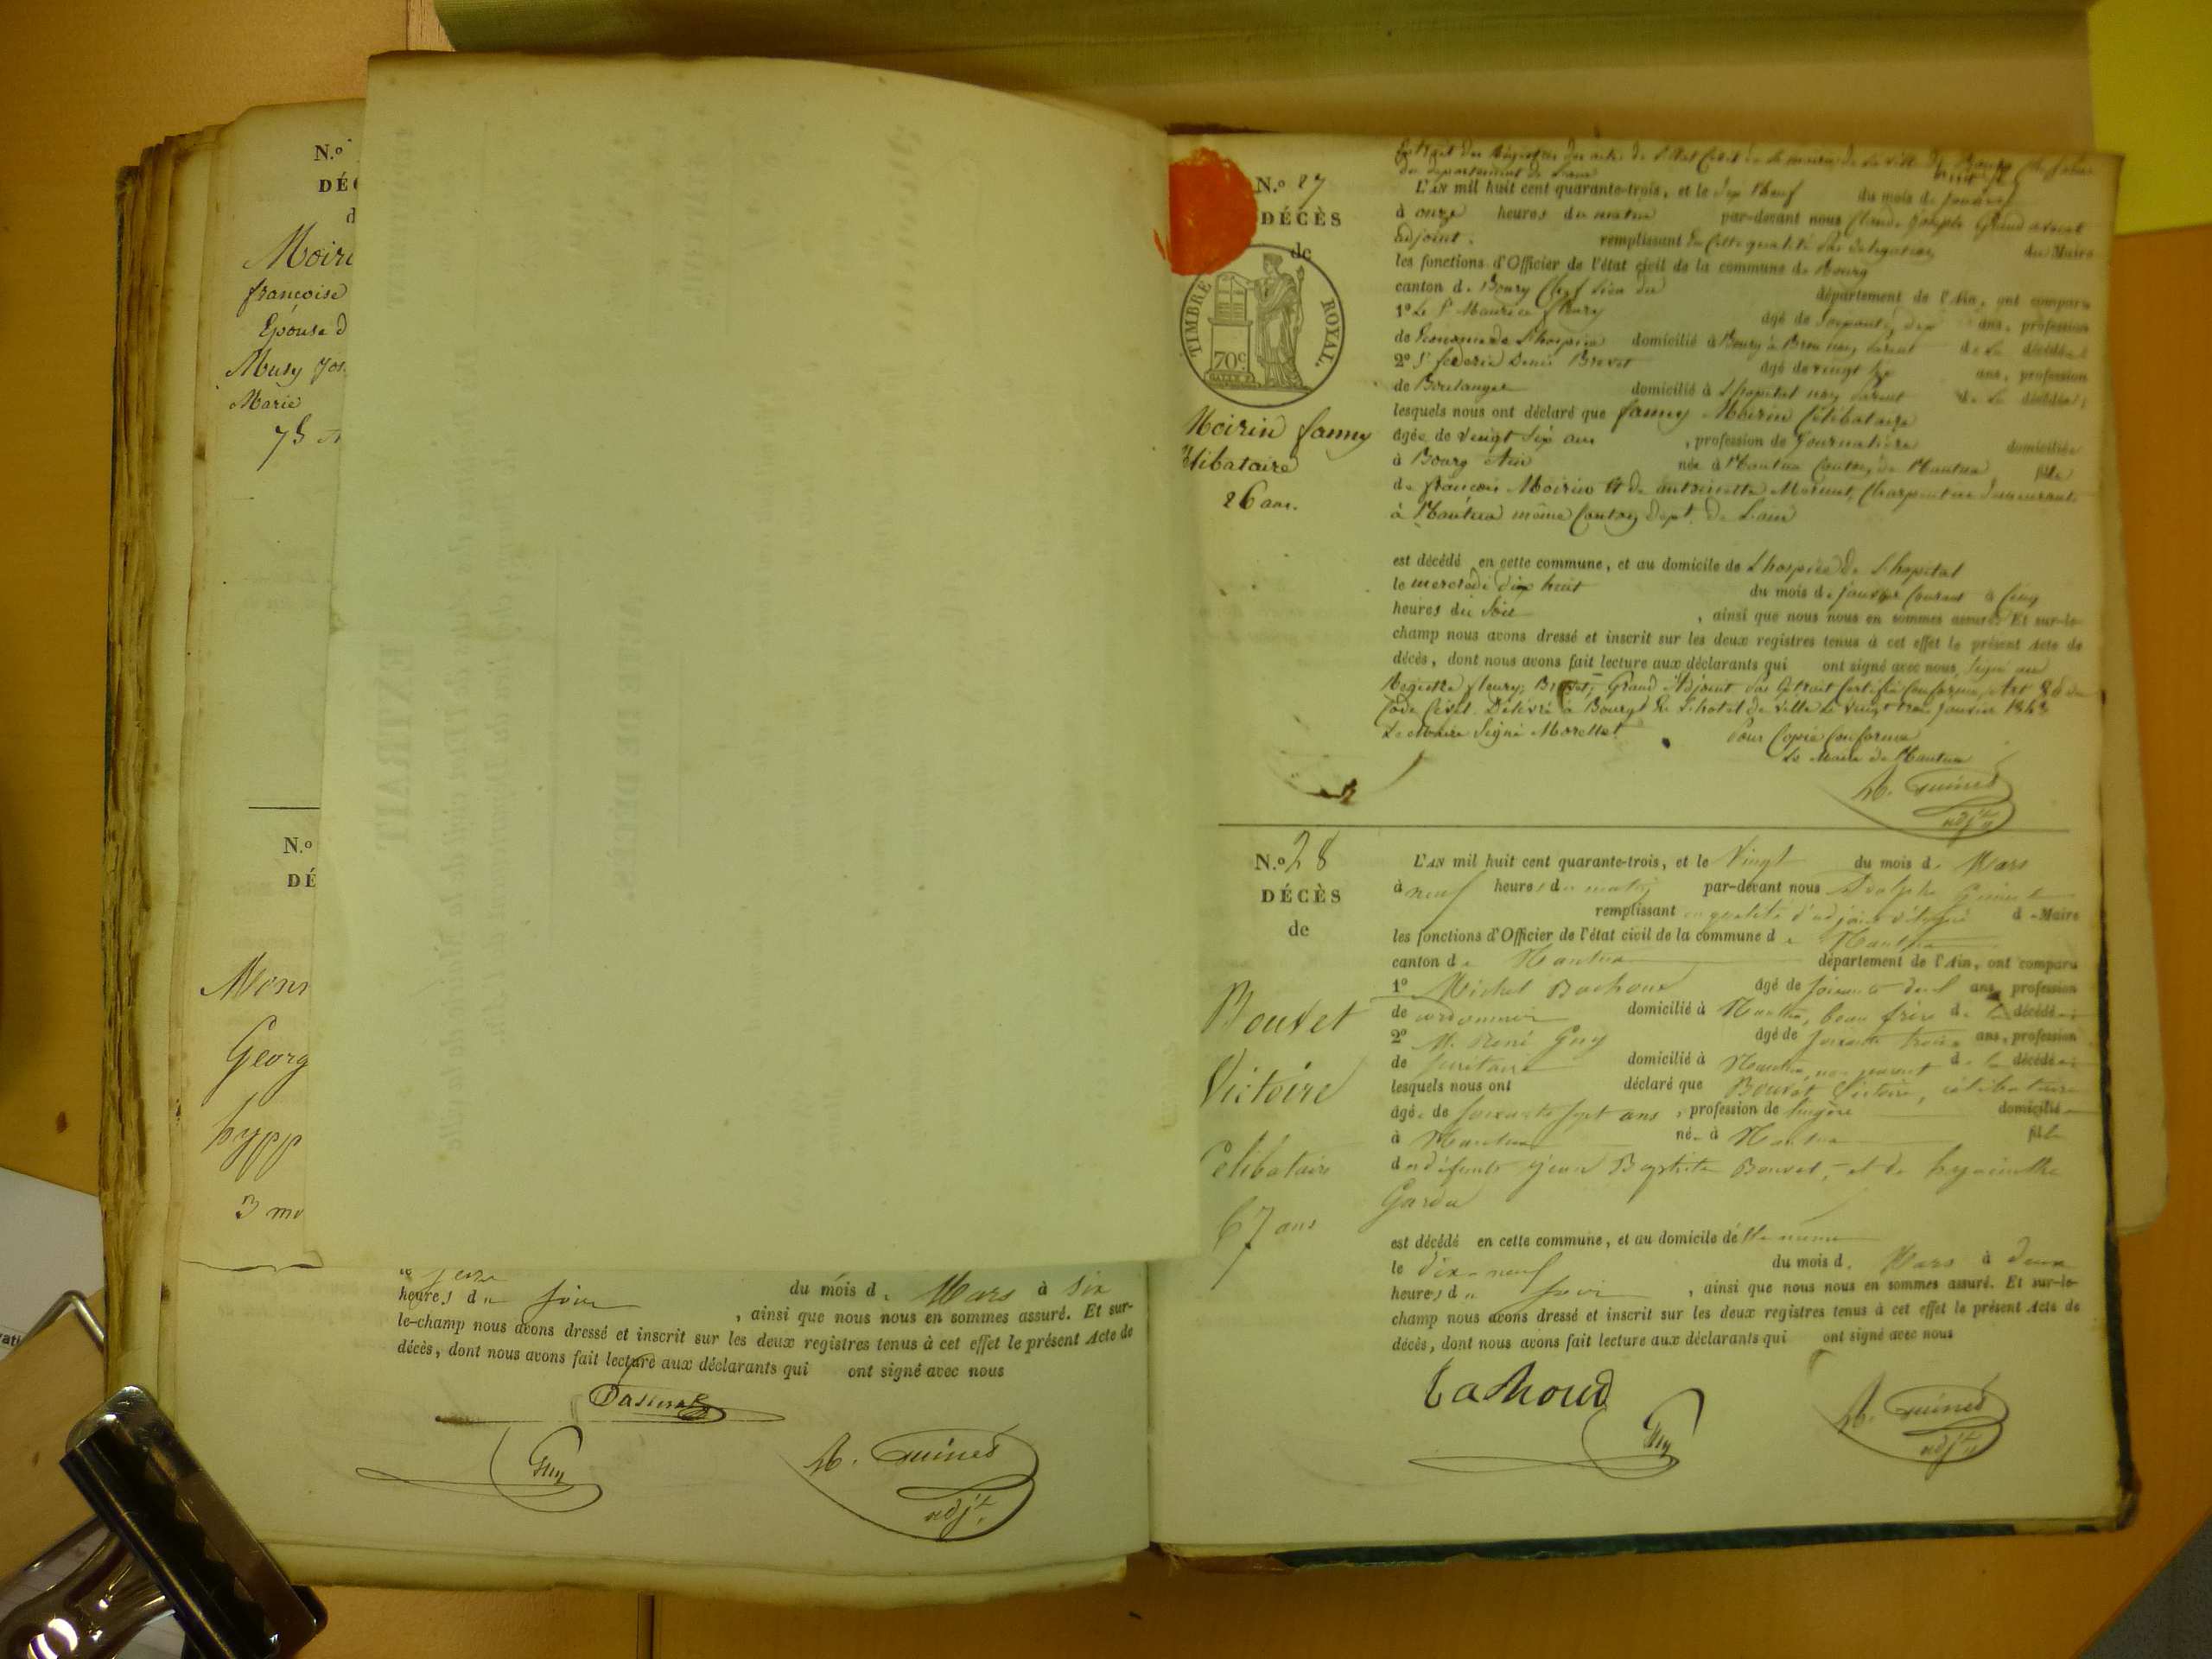 N.º
DÉC
d
Moiri
françoise
Epouse d
Musy Jos.
Marie
75 a
N.º
DÉ
Mon
Georg
hypp
3 mo
heures du soir du mois de Mars à six
, ainsi que nous nous en sommes assuré. Et sur-
le-champ nous avons dressé et inscrit sur les deux registres tenus à cet effet le présent Acte de
décès, dont nous avons fait lecture aux déclarants qui ont signé avec nous
Guy
Guinet
adjt.
EXTRAIT
ACTE DE DÉCÈS
N.º 27
DÉCÈS
de
TIMBRE ROYAL
70c
Moirin fanny
Célibataire
26 ans.
Extrait des Registres des actes de l'Etat Civil de la mairie de la ville de Bourg Chef lieu
du département de l'ain
L'AN mil huit cent quarante-trois, et le dix Neuf du mois de Janvier
à onze heures du matin par-devant nous Claude Joseph Grand avocat
adjoint. remplissant en cette qualité par délégation du Maire
les fonctions d'Officier de l'état civil de la commune de Bourg
canton de Bourg Chef lieu du département de l'Ain, ont comparu
1º Le Sr Maurice fleury âgé de Soixante dix ans, profession
de Econome de L'hospice domicilié à Bourg à Brou non parent de la décédée
2º Sr féderic Denis Brevet âgé de vingt ans, profession
de Boulanger domicilié à L'hopital non parent de la décédée;
lesquels nous ont déclaré que fanny Moirin Célibataire
âgée de vingt Six ans , profession de Journalière domiciliée
à Bourg Ain née à Nantua Canton de Nantua fille
de françois Moirin et de antoinette Charpentier demeurant
à Nantua même Canton Dept. de L'ain
est décédé en cette commune, et au domicile de L'hospice de L'hopital
le mercredi dix huit du mois de janvier Courant à Cinq
heures du Soir , ainsi que nous nous en sommes assuré. Et sur-le-
champ nous avons dressé et inscrit sur les deux registres tenus à cet effet le présent Acte de
décès, dont nous avons fait lecture aux déclarants qui ont signé avec nous Signé au
Registre fleury, Brevet, Grand Adjoint Par Extrait Certifié Conforme, Art du
Code Civil. Délivré à Bourg En L'hotel de ville le vingt trois Janvier 1843
Le Maire Signé Morellet Pour Copie Conforme
Le Maire de Nantua
Guinet
adjt
N.º 28
DÉCÈS
de
Bouvet
Victoire
Célibataire
67 ans
L'AN mil huit cent quarante-trois, et le Vingt du mois de Mars
à neuf heures du matin par-devant nous Adolphe Guinet
remplissant en qualité d'adjoint délégué du Maire
les fonctions d'Officier de l'état civil de la commune de Nantua
canton de Nantua département de l'Ain, ont comparu
1º Michel Bachoud âgé de soixante deux ans, profession
de cordonnier domicilié à Nantua, beau frère de la décédée
2º M. René Guy âgé de soixante trois ans, profession
de domicilié à Nantua, non parent de la décédée
lesquels nous ont déclaré que Bouvet Victoire, célibataire
âgée de soixante sept ans , profession de lingère domiciliée
à Nantua née à Nantua fille
de défunts Jean Baptiste Bouvet, et de hyacinthe
Garda
est décédé en cette commune, et au domicile d'elle même
le dix-neuf du mois de Mars à deux
heures du soir , ainsi que nous nous en sommes assuré. Et sur-le-
champ nous avons dressé et inscrit sur les deux registres tenus à cet effet le présent Acte de
décès, dont nous avons fait lecture aux déclarants qui ont signé avec nous
Guy
Guinet
adjt